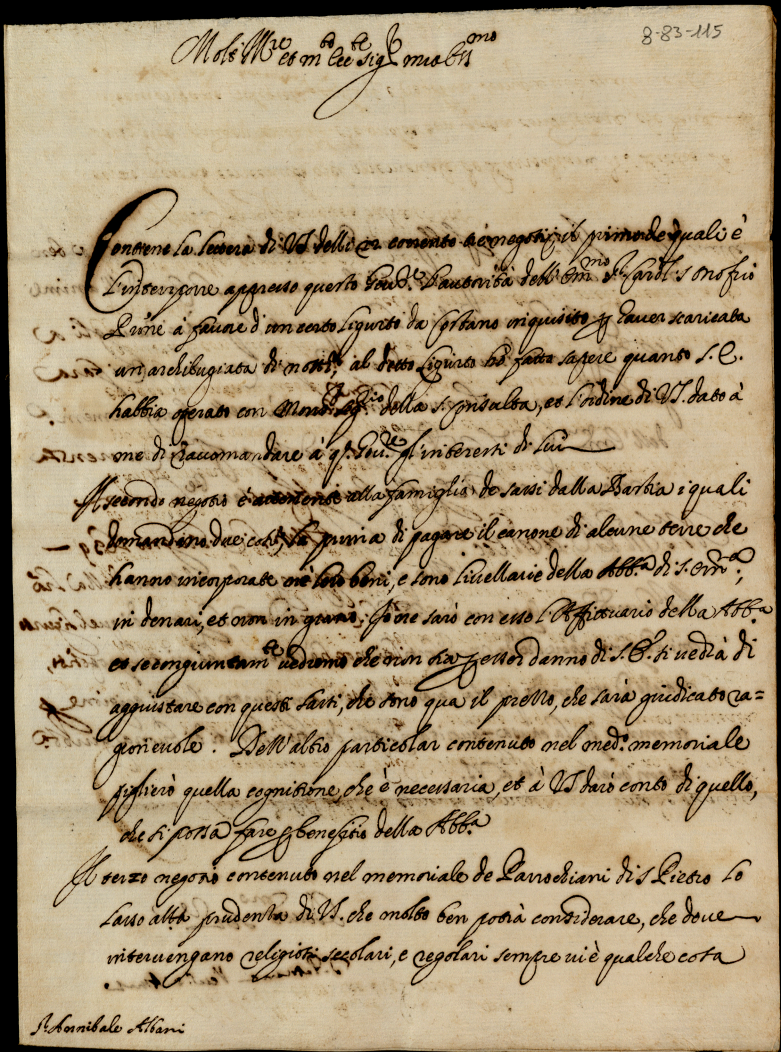 8-83-115
Molt Ill.re et m.to Ecc.te Sig.r mio Oss.mo
Contiene la lettera di VS delli 12 corrente tre negotij il primo de quali è
l'interporre appresso questo Gov.re l'autorità dell' Em.mo S.r Card.l S Onofrio
P'rone à favore d'un certo Ligurto da Costano inquisito p haver scaricata
un archibugiata di notte, al detto Ligurto hò fatto sapere quanto S. E.
habbia operato con Mons.r Seg.rio della S. Consulta, et l'ordine di VS. dato à
me di raccomandare à q.o Gov.re gl'interessi di lui
Il secondo negotio è attenente alla famiglia de Sassi dalla Bastia i quali
domandano due cose, la prima di pagare il canone di alcune terre che
hanno incorporate ne loro beni, e sono livellarie della Abb.a di S. Crõce,
in denari, et non in grano; Io ne sarò con esso l'Affittuario della Abb.a
et secongiuntam.te vedremo che non sia p esser danno di S. E. si vedrà di
aggiustare con questi Sassi, che sono qua il prezzo, che sarà giudicato ra=
gionevole. Dell'altro particolar contenuto nel med.o memoriale
piglierò quella cognitione, che è necessaria, et à VS darò conto di quello,
che si possa fare p benefitio della Abb.a
Il terzo negotio contenuto nel memoriale de Parrochiani di S Pietro lo
lasso alla prudenza di VS. che molto ben potrà considerare, che dove
intervengano religiosi secolari, e regolari sempre vi è qualche cosa
S.r Annibale Albani